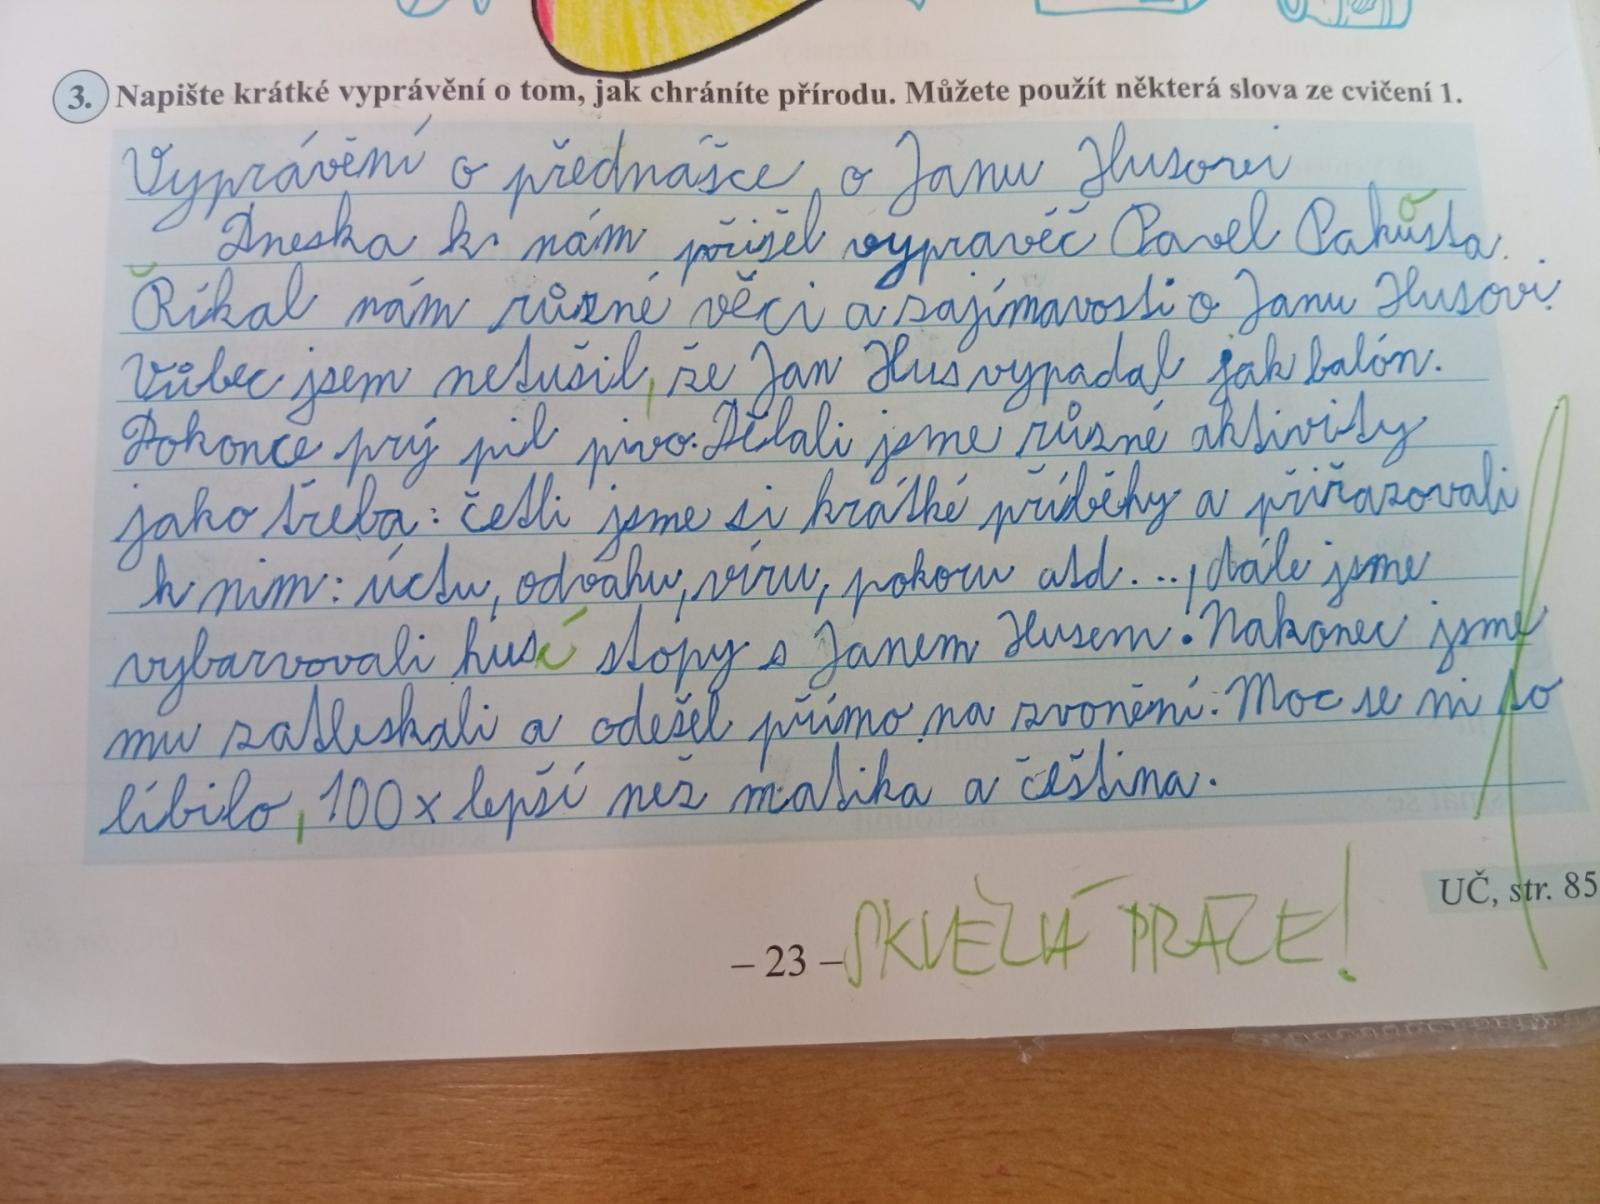 3. Napište krátké vyprávění o tom, jak chráníte přírodu. Můžete použít některá slova ze cvičení 1.
Vyprávění o přednášce o Janu Husovi
Dneska k nám přišel vypravěč Pavel Pakůsta.
Říkal nám různé věci a zajímavosti o Janu Husovi.
Vůbec jsem netušil, že Jan Hus vypadal jak balón.
Dokonce prý pil pivo. Dělali jsme různé aktivity
jako třeba: četli jsme si krátké příběhy a přiřazovali
k nim: úctu, odvahu, víru, pokoru atd..., dále jsme
vybarvovali husí stopy s Janem Husem. Nakonec jsme
mu zatleskali a odešel přímo na zvonění. Moc se mi to
líbilo, 100x lepší než matika a čeština.
UČ, str. 85
– 23 –
SKVĚLÁ PRÁCE!